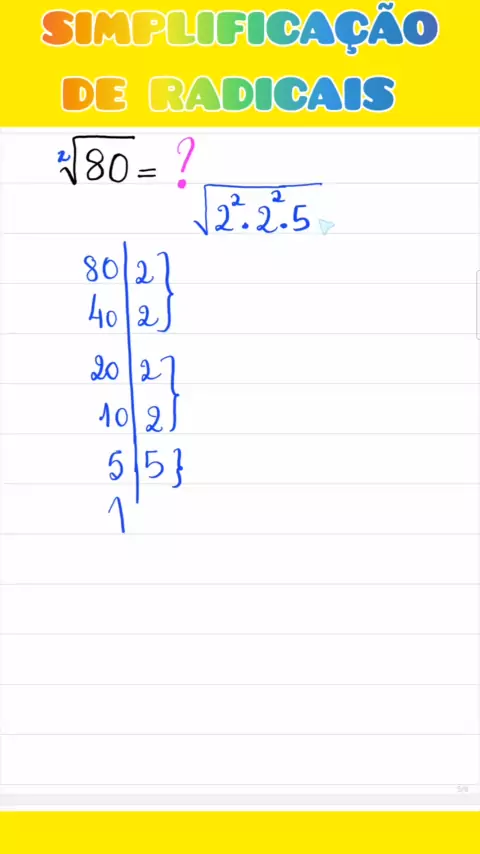 SIMPLIFICAÇÃO
DE RADICAIS
²√80 = ?
√2² . 2² . 5
80 | 2 }
40 | 2
20 | 2 }
10 | 2
5 | 5 }
1